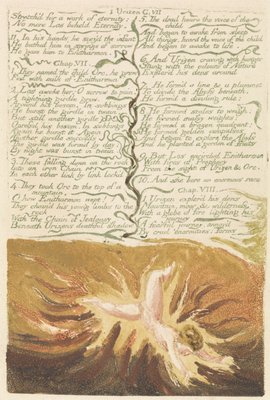 Urizen C. VII
Stretch'd for a work of eternity;
No more Los beheld Eternity.
11. In his hands he seiz'd the infant
He bathed him in springs of sorrow
He gave him to Enitharmon.
Chap. VII.
1. They named the child Orc, he grew
Fed with milk of Enitharmon
2. Los awoke her; O sorrow & pain!
A tight'ning girdle grew,
Around his bosom. In sobbings
He burst the girdle in twain,
But still another girdle
Opressd his bosom, In sobbings
Again he burst it. Again
Another girdle succeeds
The girdle was form'd by day;
By night was burst in twain.
3. These falling down on the rock
Into an iron Chain
In each other link by link lock'd
4. They took Orc to the top of a
mountain.
O how Enitharmon wept!
They chain'd his young limbs to the
rock
With the Chain of Jealousy
Beneath Urizens deathful shadow
5. The dead heard the voice of the
child
And began to awake from sleep
All things. heard the voice of the child
And began to awake to life.
6. And Urizen craving with hunger
Stung with the odours of Nature
Explor'd his dens around
7. He form'd a line & a plummet
To divide the Abyss beneath.
He form'd a dividing rule:
8. He formed scales to weigh;
He formed massy weights;
He formed a brazen quadrant;
He formed golden compasses
And began to explore the Abyss
And he planted a garden of fruits
9. But Los encircled Enitharmon
With fires of Prophecy
From the sight of Urizen & Orc.
10. And she bore an enormous race
Chap. VIII.
1. Urizen explor'd his dens
Mountain, moor, & wilderness,
With a globe of fire lighting his
journey
A fearful journey, annoy'd
By cruel enormities: forms